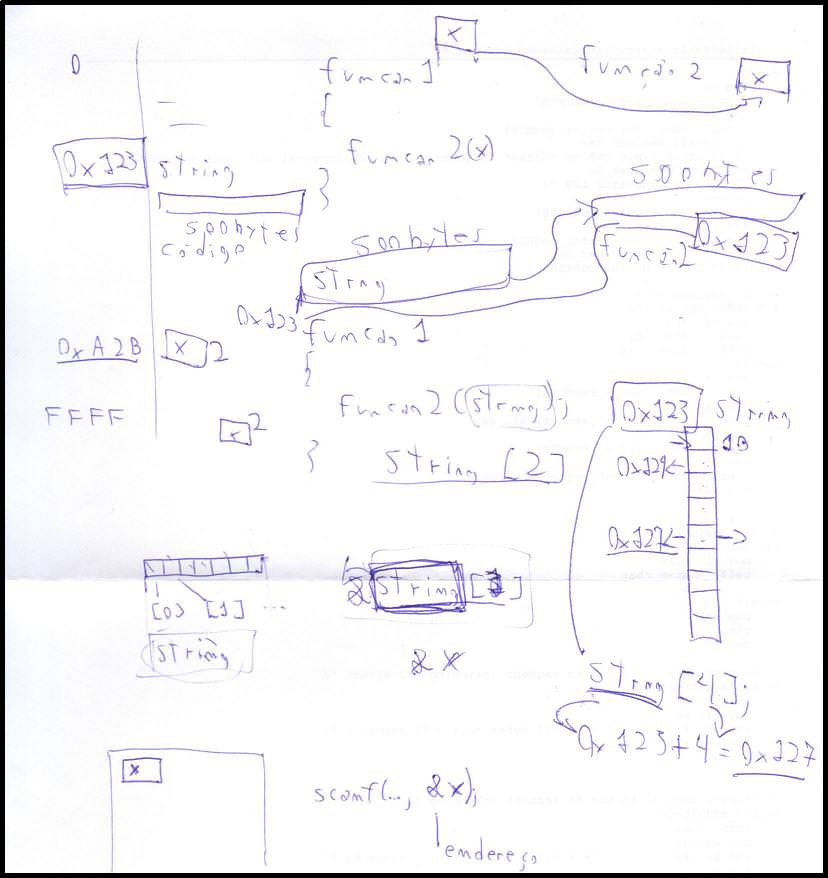 0
x
funcao 1
função 2
x
{
0x123
string
funcao 2(x)
}
500bytes
500bytes
código
500bytes
string
função2
0x123
0x123
funcao 1
0xA2B
x 2
{
FFFF
x 2
funcao 2 (string);
0x123
string
}
string [2]
1B
0x124
0x127
[0] [1] ...
&string[1]
string
&x
string [4];
0x123+4=0x127
x
scanf(..., &x);
endereço